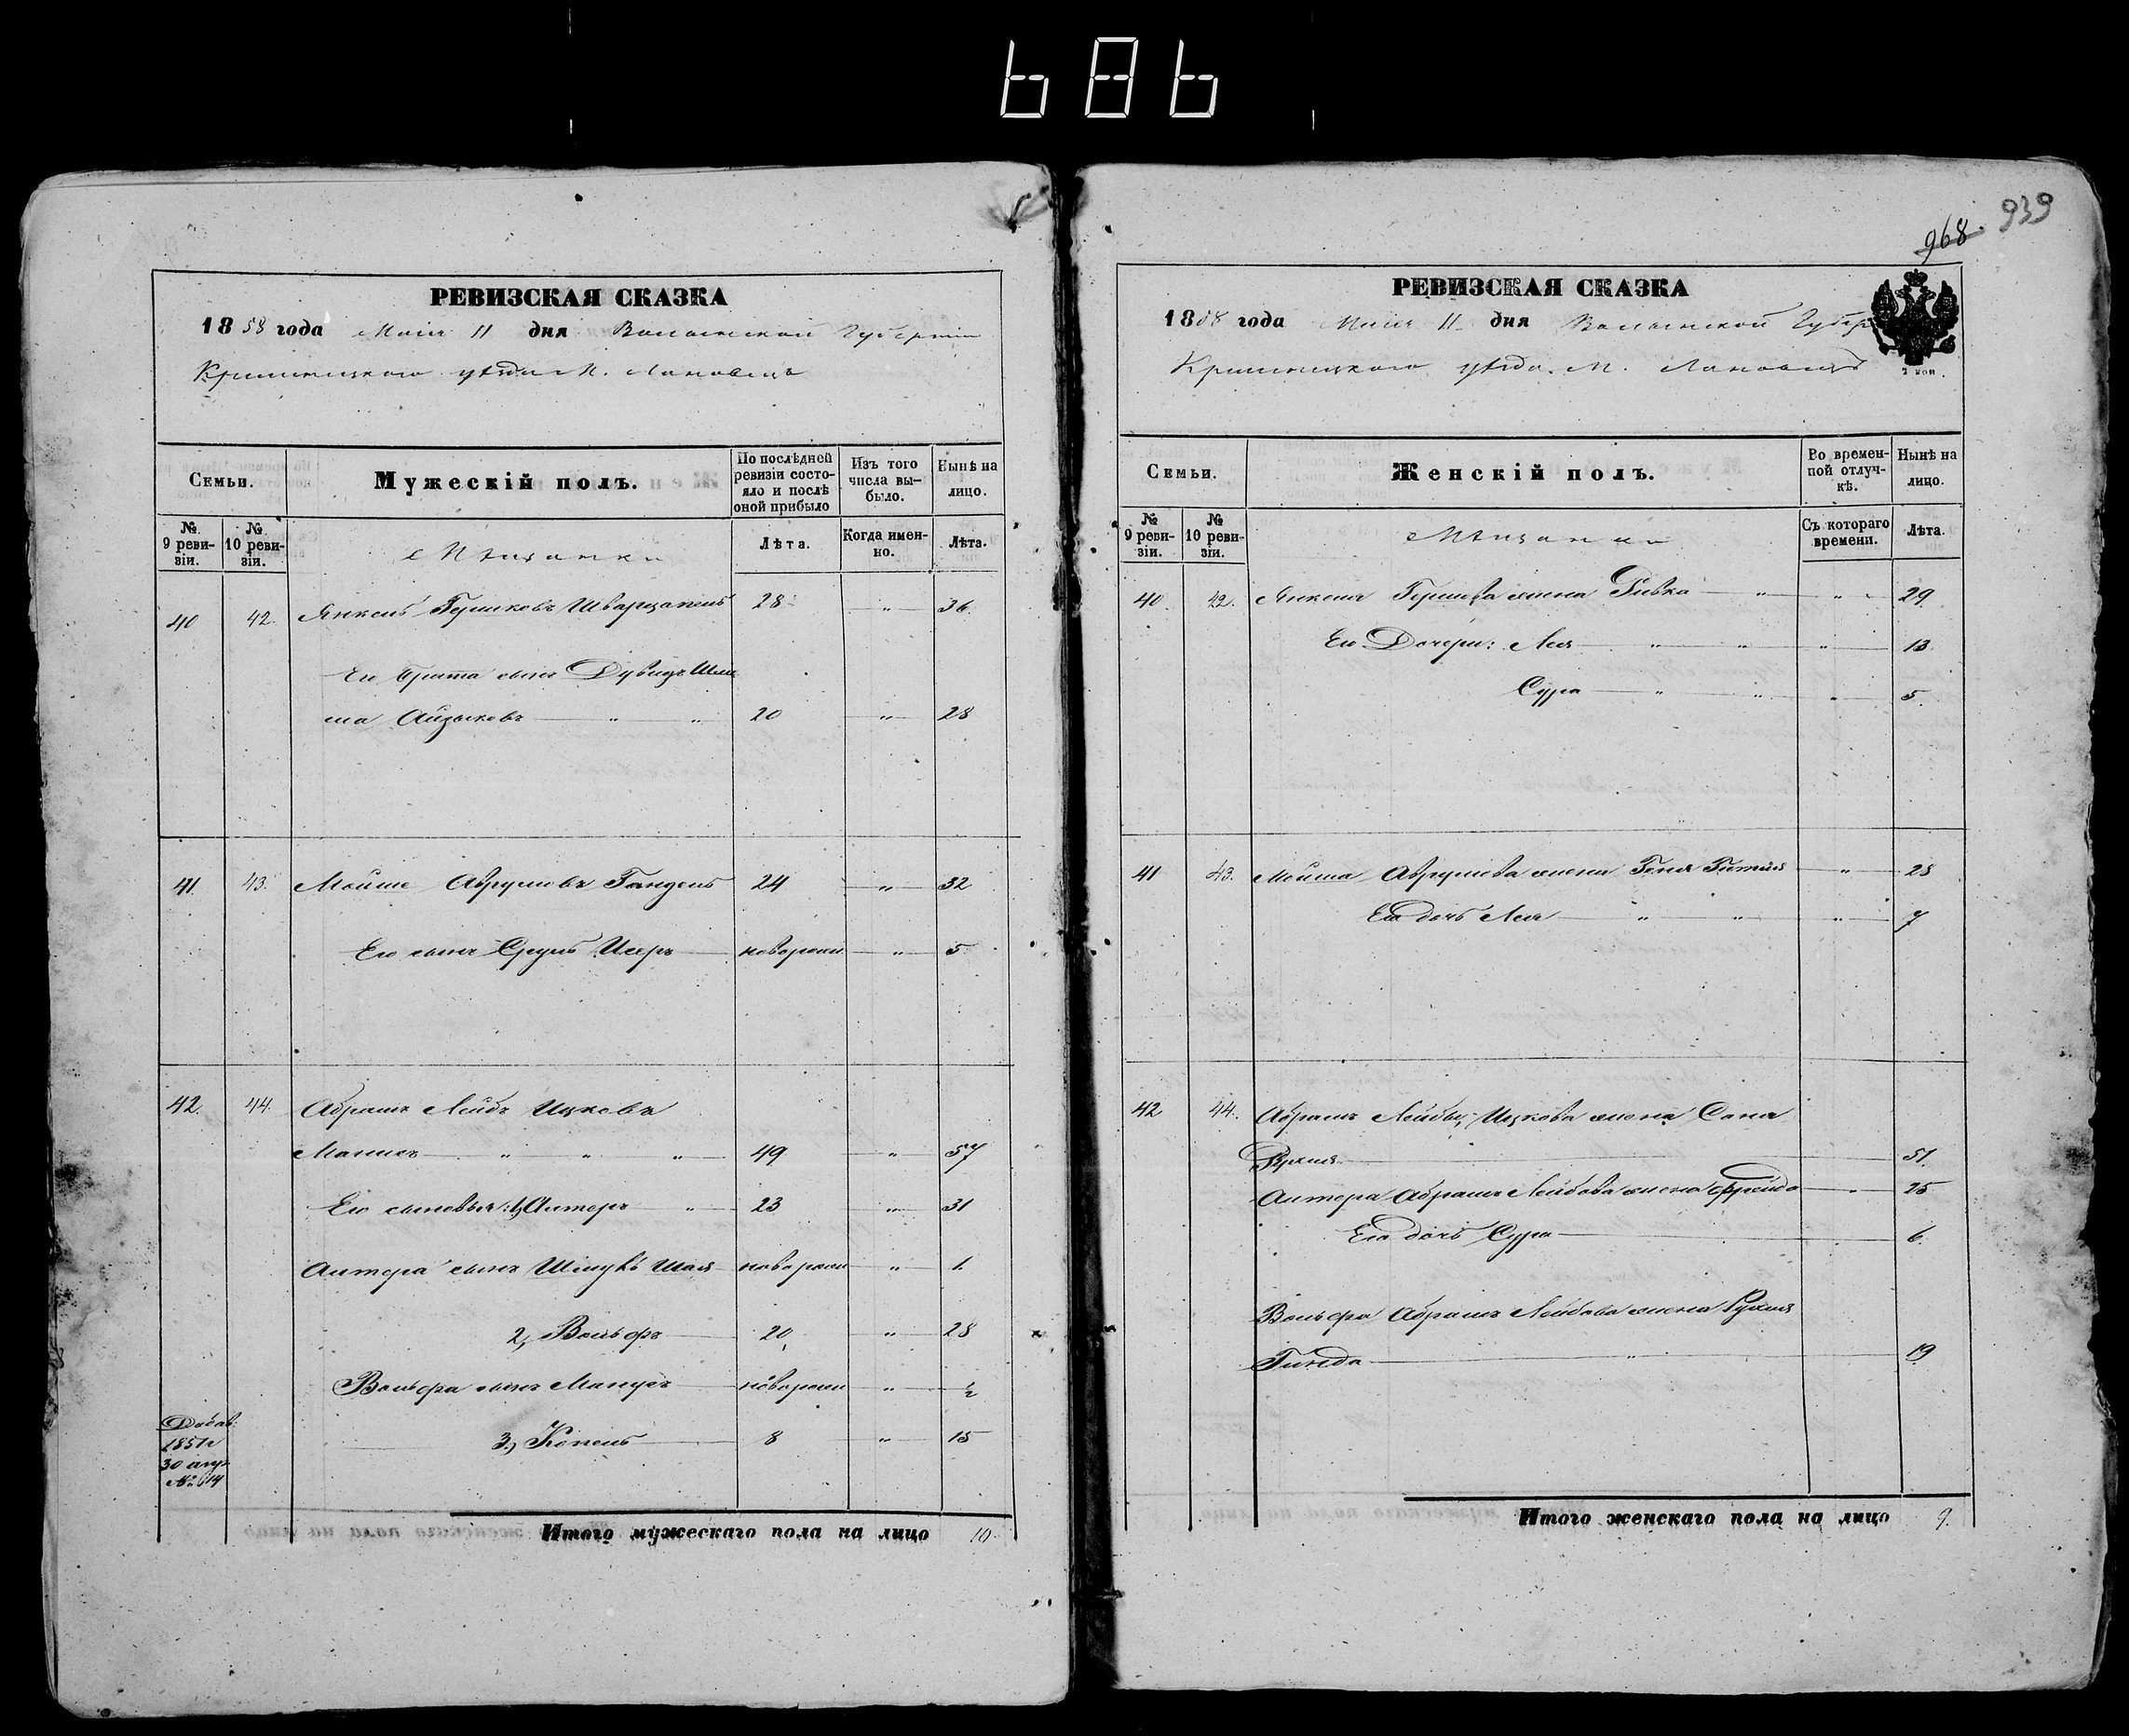 686
РЕВИЗСКАЯ СКАЗКА
1858 года Маія 11 дня Волынской Губерніи
Кременецкого уѣзда М. Лановецъ
Семьи.
Мужескій полъ.
По послѣдней ревизіи состояло и послѣ оной прибыло
Изъ того числа выбыло.
Нынѣ на лицо.
№ 9 ревизіи.
№ 10 ревизіи.
Мѣщанки
Лѣта.
Когда именно.
Лѣта.
40 42. Янкель Гершковъ Шварцапель 28 " 36.
Его брата сынъ Дувидъ Шлиома
Айзыковъ " " 20 " 28
41. 43. Мойше Аврумовъ Гандель 24 " 32
Его сынъ Сруль Исеръ новорожд " 5
42. 44. Абрамъ Лейбъ Ицковъ
Манисъ " " " 49 " 57
Его сыновья: 1, Антеръ " 23 " 31
Антера сынъ Шая новорожд " 1.
2, Вольфъ 20 " 28
Вольфа сынъ новорожд " ½
Добав: 1851 г 30 № 614
3, Копель 8 " 15
Итого мужескаго пола на лицо 10
968. 939
РЕВИЗСКАЯ СКАЗКА
1858 года Маія 11 дня Волынской Губер
Кременецкого уѣзда. М. Лановецъ
Семьи.
Женскій полъ.
Во временной отлучкѣ.
Нынѣ на лицо.
№ 9 ревизіи.
№ 10 ревизіи.
Мѣщанки
Съ котораго времени.
Лѣта.
40. 42. Янкеля Гершкова жена Ривка " " 29.
Его Дочери: Лея " " " 13
Сура " " " 5.
41 43. Мойша Аврумова жена Геня Гитля " 28
Его дочь Лея " " " 7
42 44. Абрамъ Лейбы Ицкова жена Сана
Рухля 51.
Антера Абрамъ Лейбова жена Фрейда " 25
Его дочь Сура 6.
Вольфа Абрамъ Лейбова жена Рухля
Гинда " 19
Итого женскаго пола на лицо 9.